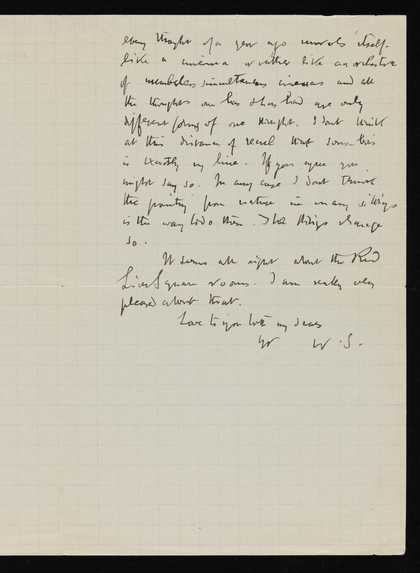 every thought of a year ago unrols itself
like a cinema or rather like an orchestra
of numberless simultaneous cinemas and all
the thoughts one has & has had are only
different forms of one thought. I dont think
at this distance of recul that
is exactly my line. If you agree you
might say so. In any case I dont think
the painting from nature in many sittings
is the way to do them. The things change
so.
It seems all right about the Red
Lion Square rooms. I am really very
pleased about that.
Love to you both my dears
yr W. S.